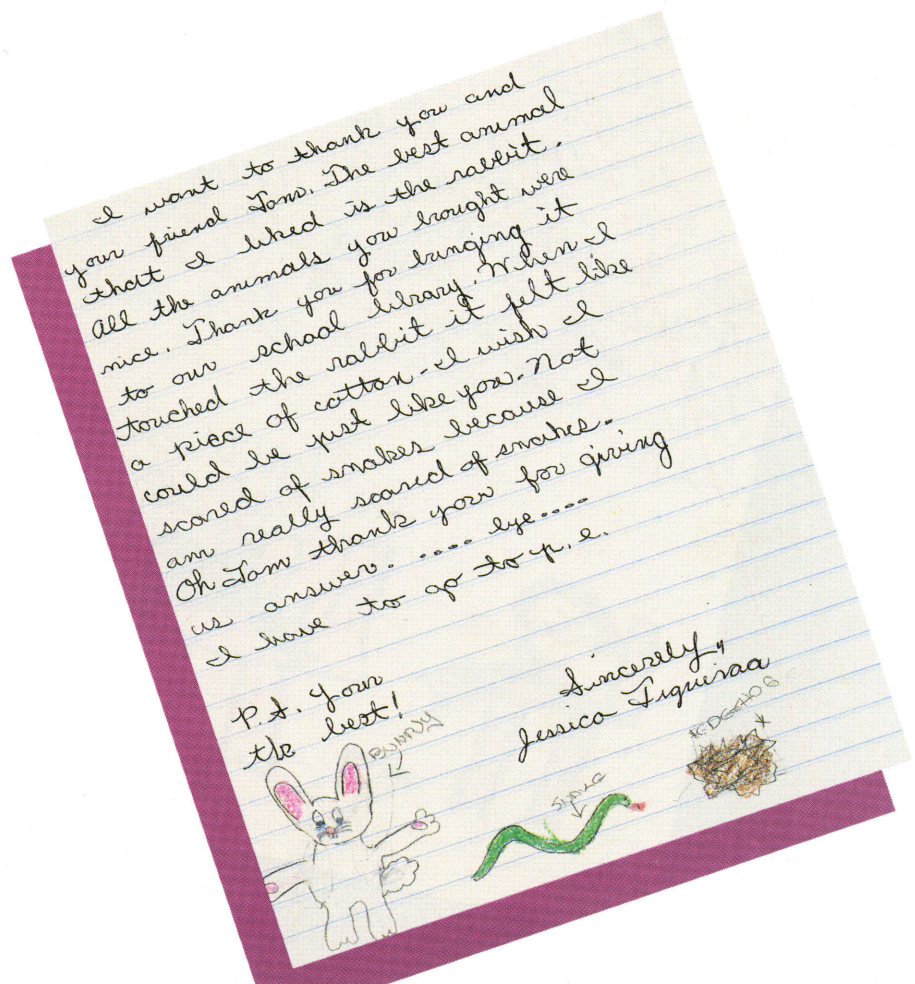 I want to thank you and
your friend Tom. The best animal
that I liked is the rabbit.
All the animals you brought were
nice. Thank you for bringing it
to our school library. When I
touched the rabbit it felt like
a piece of cotton. I wish I
could be just like you. Not
scared of snakes because I
am really scared of snakes.
Oh Tom thank you for giving
us answer. .... bye....
I have to go to p.e.
Sincerely,
Jessica Figueroa
P.S. Your
the best!
BUNNY
SNAKE
HEDGEHOG